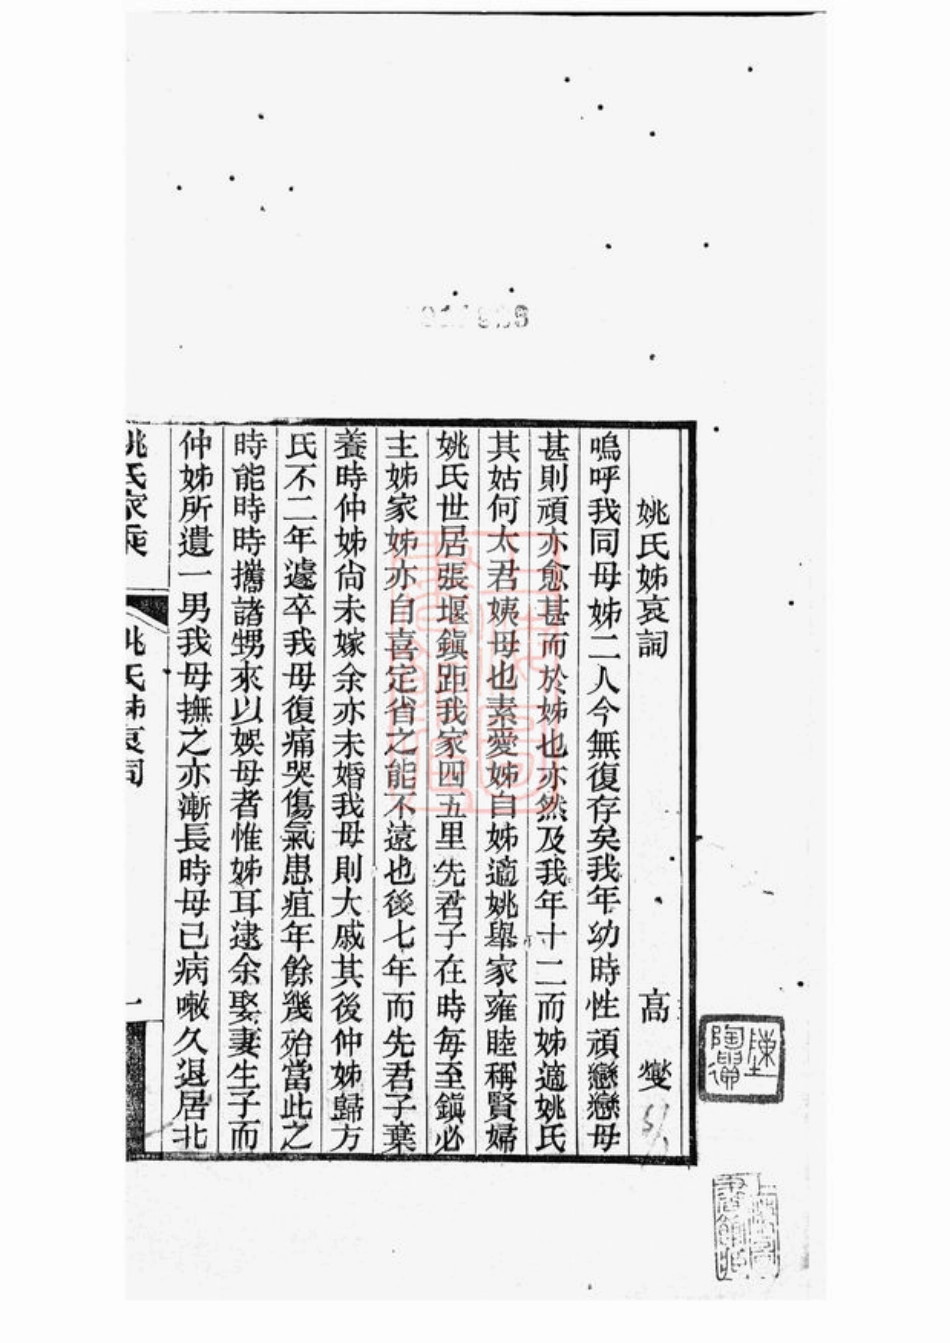 姚氏姊哀詞
高燮
嗚呼我同母姊二人今無復存矣我年幼時性頑戀戀母
甚則頑亦愈甚而於姊也亦然及我年十二而姊適姚氏
其姑何太君姨母也素愛姊自姊適姚舉家雍睦稱賢婦
姚氏世居張堰鎮距我家四五里先君子在時每至鎮必
主姊家姊亦自喜定省之能不遠也後七年而先君子棄
養時仲姊尙未嫁余亦未婚我母則大戚其後仲姊歸方
氏不二年遽卒我母復痛哭傷氣患疽年餘幾殆當此之
時能時時攜諸甥來以娛母者惟姊耳逮余娶妻生子而
仲姊所遺一男我母撫之亦漸長時母已病嗽久退居北
姚氏家乘
姚氏姊哀詞
一